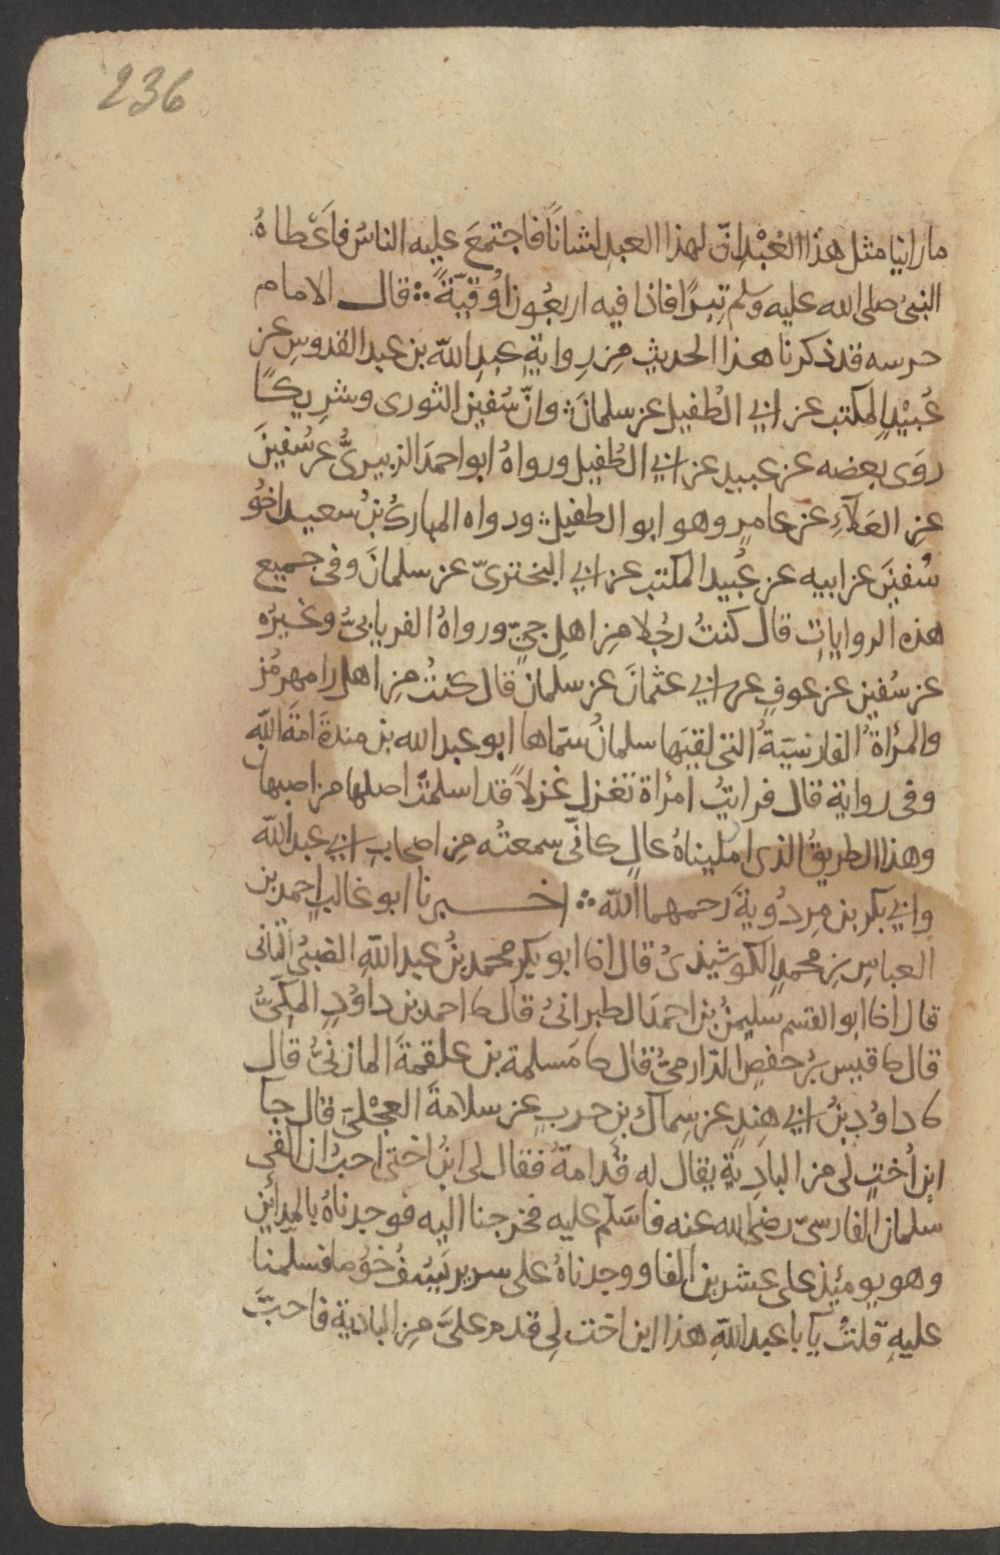 236
ما راينا مثل هذا العَبْدِ انّ لهذا العبدِ لشانًا فاجتمعَ عليه الناسُ فاَعْطاهُ
النبىُ صلى الله عليه وسلم تِبرًا فاذا فيه اربعُون اُوقيّةً ؞ قال الامام
حرسه قد ذكرنا هذا الحديث مِن رِوايةِ عبدِ اللّه بن عبد القدوسِ عن
عُبَيْدٍ المكتب عن ابي الطُفيل عن سلمانَ ؞ وانّ سُفين الثورى وشرِيكًا
روَى بعضه عن عبيد عن ابي الطُفيل ورواهُ ابو احمدَ الزبيرىُّ عن سُفينَ
عنِ العَلآءِ عن عامرٍ وهو ابو الطفيل ؞ ورواه المباركُ بنُ سعيد اخُو
سُفينَ عن ابيه عن عُبيد المكتب عن ابي البخترىّ عن سلمانَ وفى جميع
هذه الروايات قال كنتُ رجُلا مِن اهلِ جيّ ورواهُ الفريابىُّ وغيرُه
عن سُفين عن عوفٍ عن ابي عثمانَ عن سلمان قال كنتُ مِن اهل رامهرمُز
والمرأةُ الفارسيّةُ التى لقيَها سلمانُ سمّاها ابو عبد الله بن مندة امَةَ اللّهِ
وفى رواية قال فرايتُ امرُاة تغزل غزلاً قد اسلمتْ اصلها من اصبهان
وهذا الطريقُ الذى امليناهُ عالٍ كانّى سمعتُه مِن اصحابِ ابي عبد اللّه
وابي بكر بن مِردُويةَ رحمهما اللّه ؞ اخـــبرنا ابو غالب احمد بن
العباسِ بنِ محمدٍ الكوشيذىُ قال انا ابو بكر محمد بنُ عبد اللّهِ الضبىُ التانى
قال انا ابو القسم سليمنُ بن احمدَ الطبرانىُ قال نا احمد بن داوُدٍ المكىُّ
قال نا قيس بنُ حفصِ الدّارمىُّ قال نا مَسلمة بن علقمةَ المازنىُّ قال
نا داوُد بنُ ابي هِندٍ عن سِماك بنِ حربٍ عن سلامةَ العِجْلىّ قال جآ
ابن اُختٍ لى من البادِيةِ يقال له قُدامةُ فقال لى ابنُ اختى احبُّ ان القى
سلمان الفارسىّ رضى الله عنه فاسَلّم عليه فخرجنا اليه فوجدناهُ بالمدآئنِ
وهو يومئذٍ على عشرين الفا ووجدناهُ على سرير يَسُفُّ خوُصا فسلّمنا
عليهِ قلتُ يآ با عبد اللّهِ هذا ابن اخت لِى قدم علىَّ مِن البادية فاحبَّ